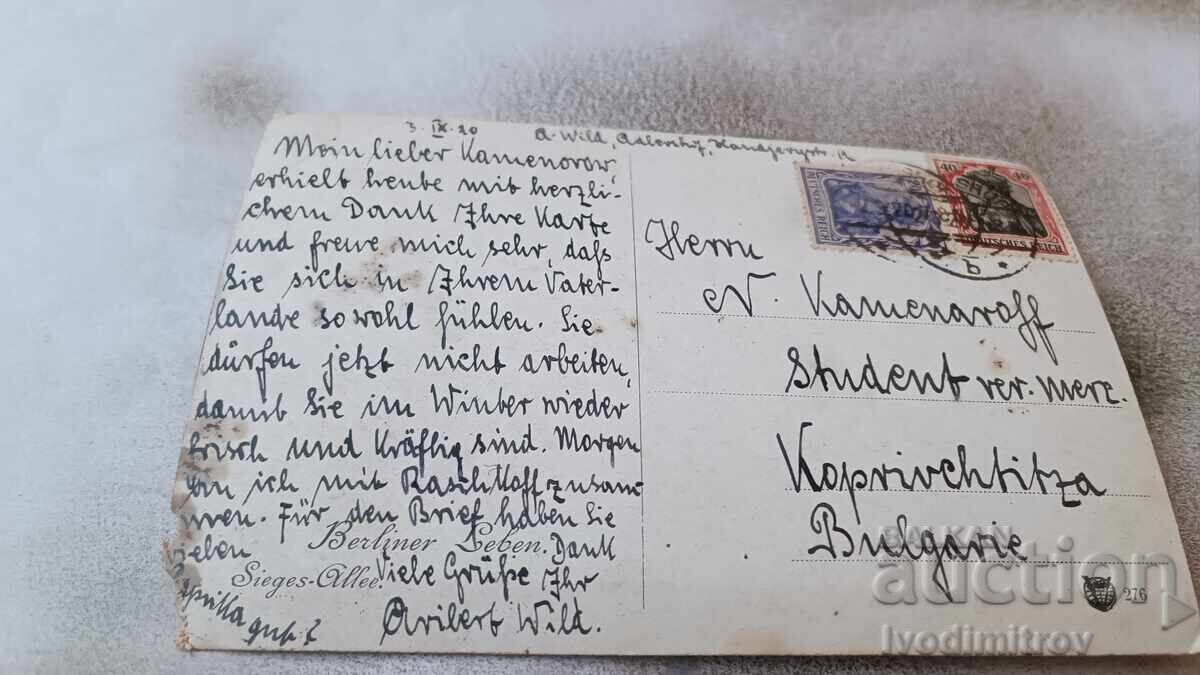 3. IX. 20
A. Wild, Adlershof,
Mein lieber Kamenorow,
erhielt heute mit herzli-
chem Dank Ihre Karte
und freue mich sehr, daß
Sie sich in Ihrem Vater-
lande so wohl fühlen. Sie
dürfen jetzt nicht arbeiten,
damit Sie im Winter wieder
frisch und kräftig sind. Morgen
ich mit Raschkoff zusam
Für den Brief haben Sie
vielen Dank
Berliner Leben.
Sieges-Allee.
Viele Grüße Ihr
Aribert Wild.
Herrn
N. Kamenaroff
Student ver. merz.
Koprivchtitza
Bulgarie
40 40
DEUTSCHES REICH
DEUTSCHES REICH
b
276
BALKAN
auction
Ivodimitrov